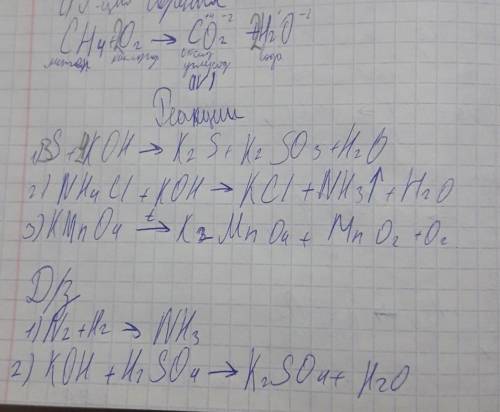 горения
CH4+2O2 → CO2 +2H2O
метан кислород оксид вода
углерода
(IV)
Реакции
1) 3S + 4KOH → K2S + K2SO3 + H2O
2) NH4Cl + KOH → KCl + NH3↑ + H2O
3) KMnO4 →t K2MnO4 + MnO2 + O2
Д/з
1) N2 + H2 → NH3
2) KOH + H2SO4 → K2SO4 + H2O